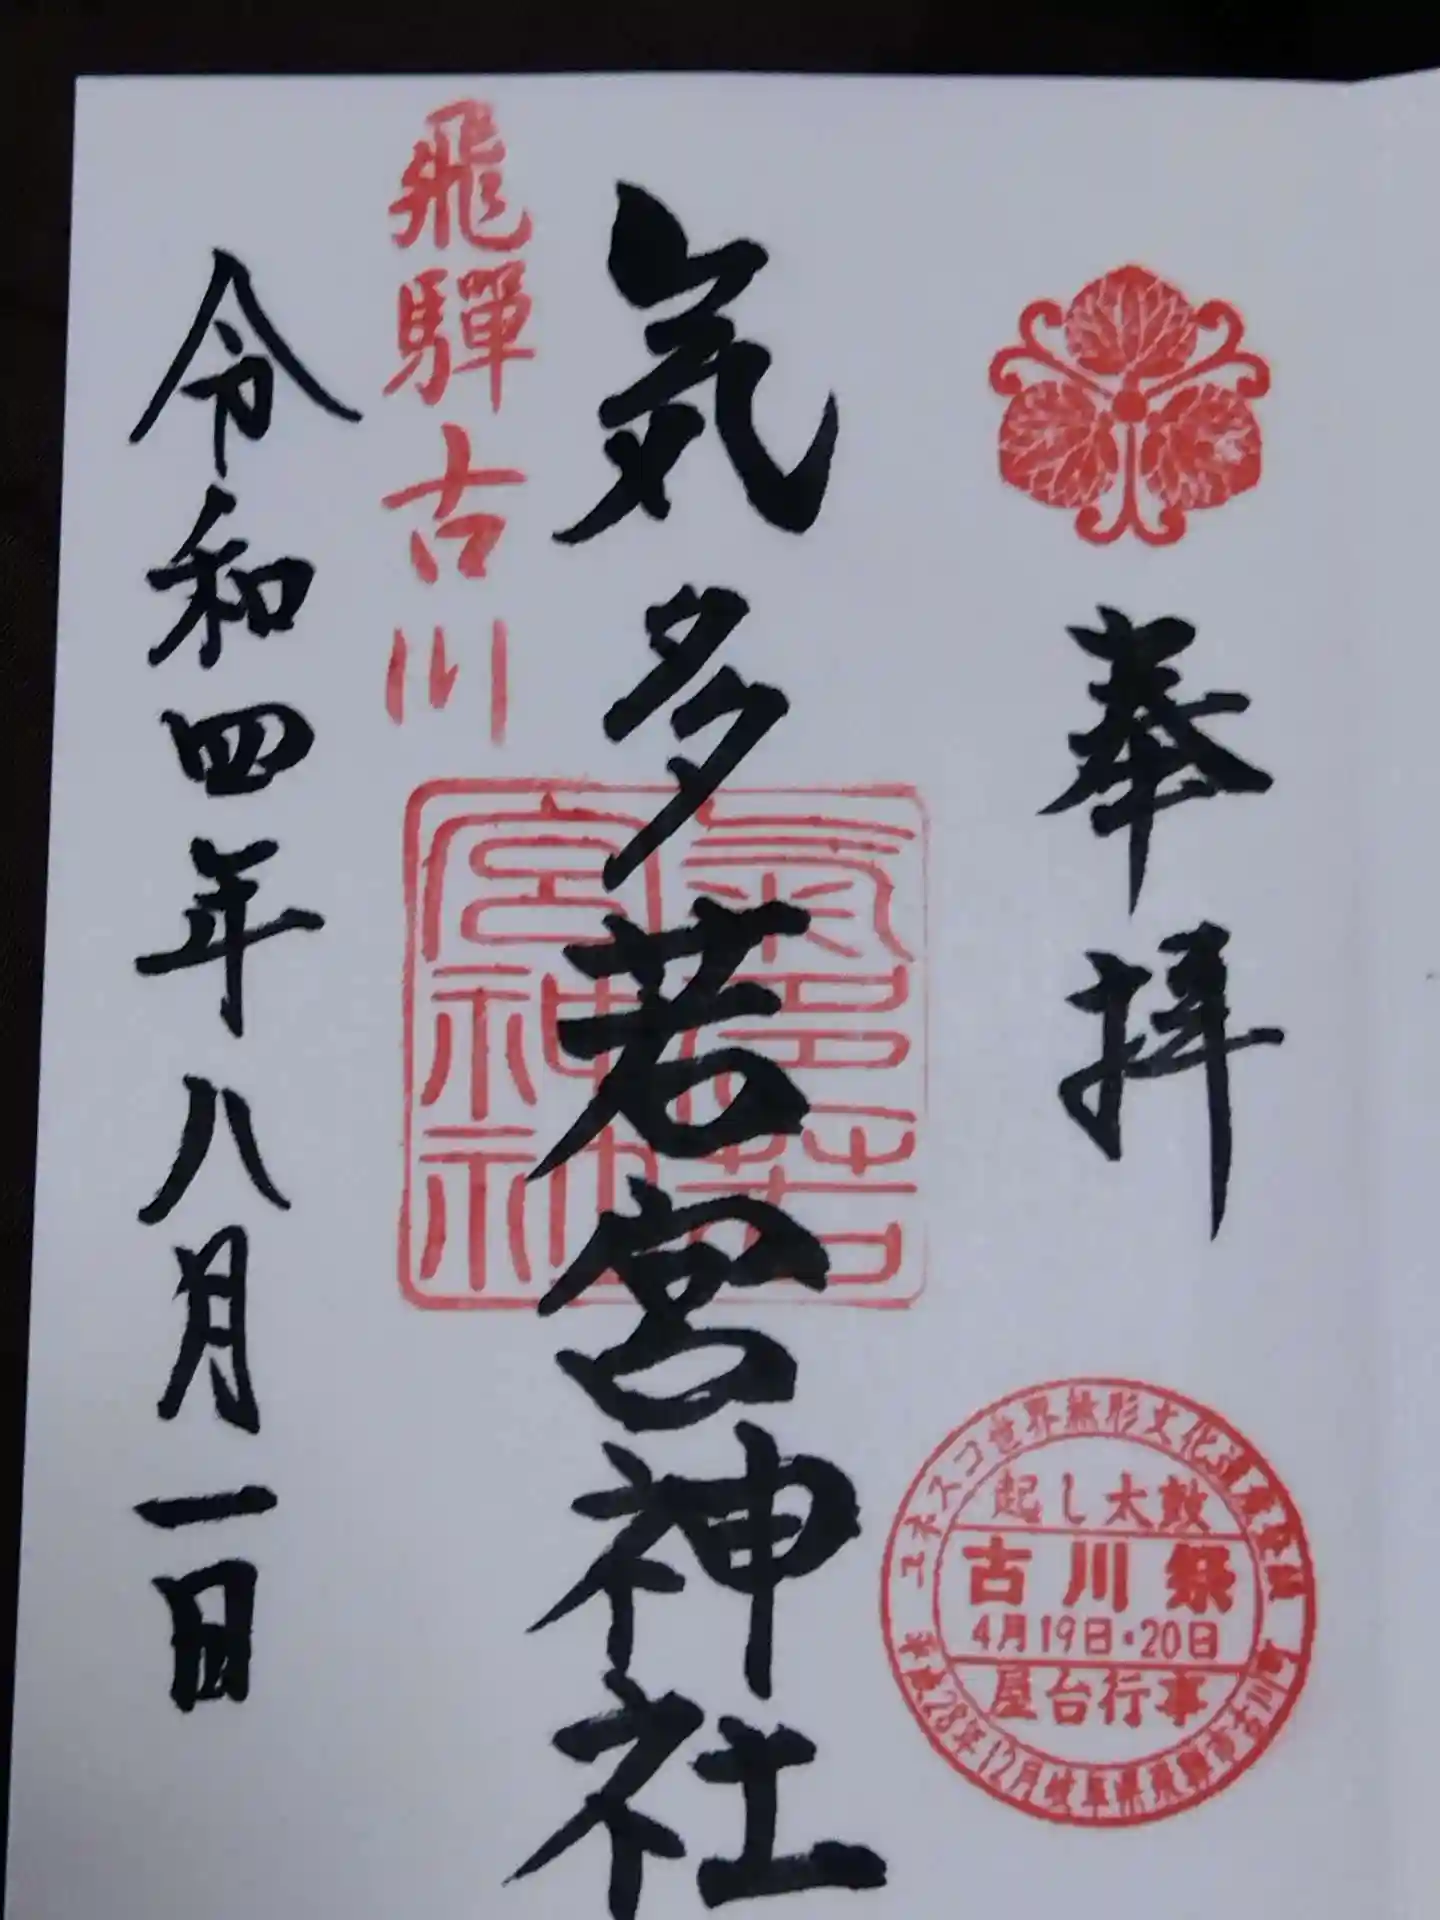 奉拝
気多若宮神社
飛騨古川
令和四年八月一日
氣多若
宮神社
ユネスコ世界無形文化遺産登録
起し太鼓
古川祭
4月19日・20日
屋台行事
平成28年12月岐阜県飛騨市古川町